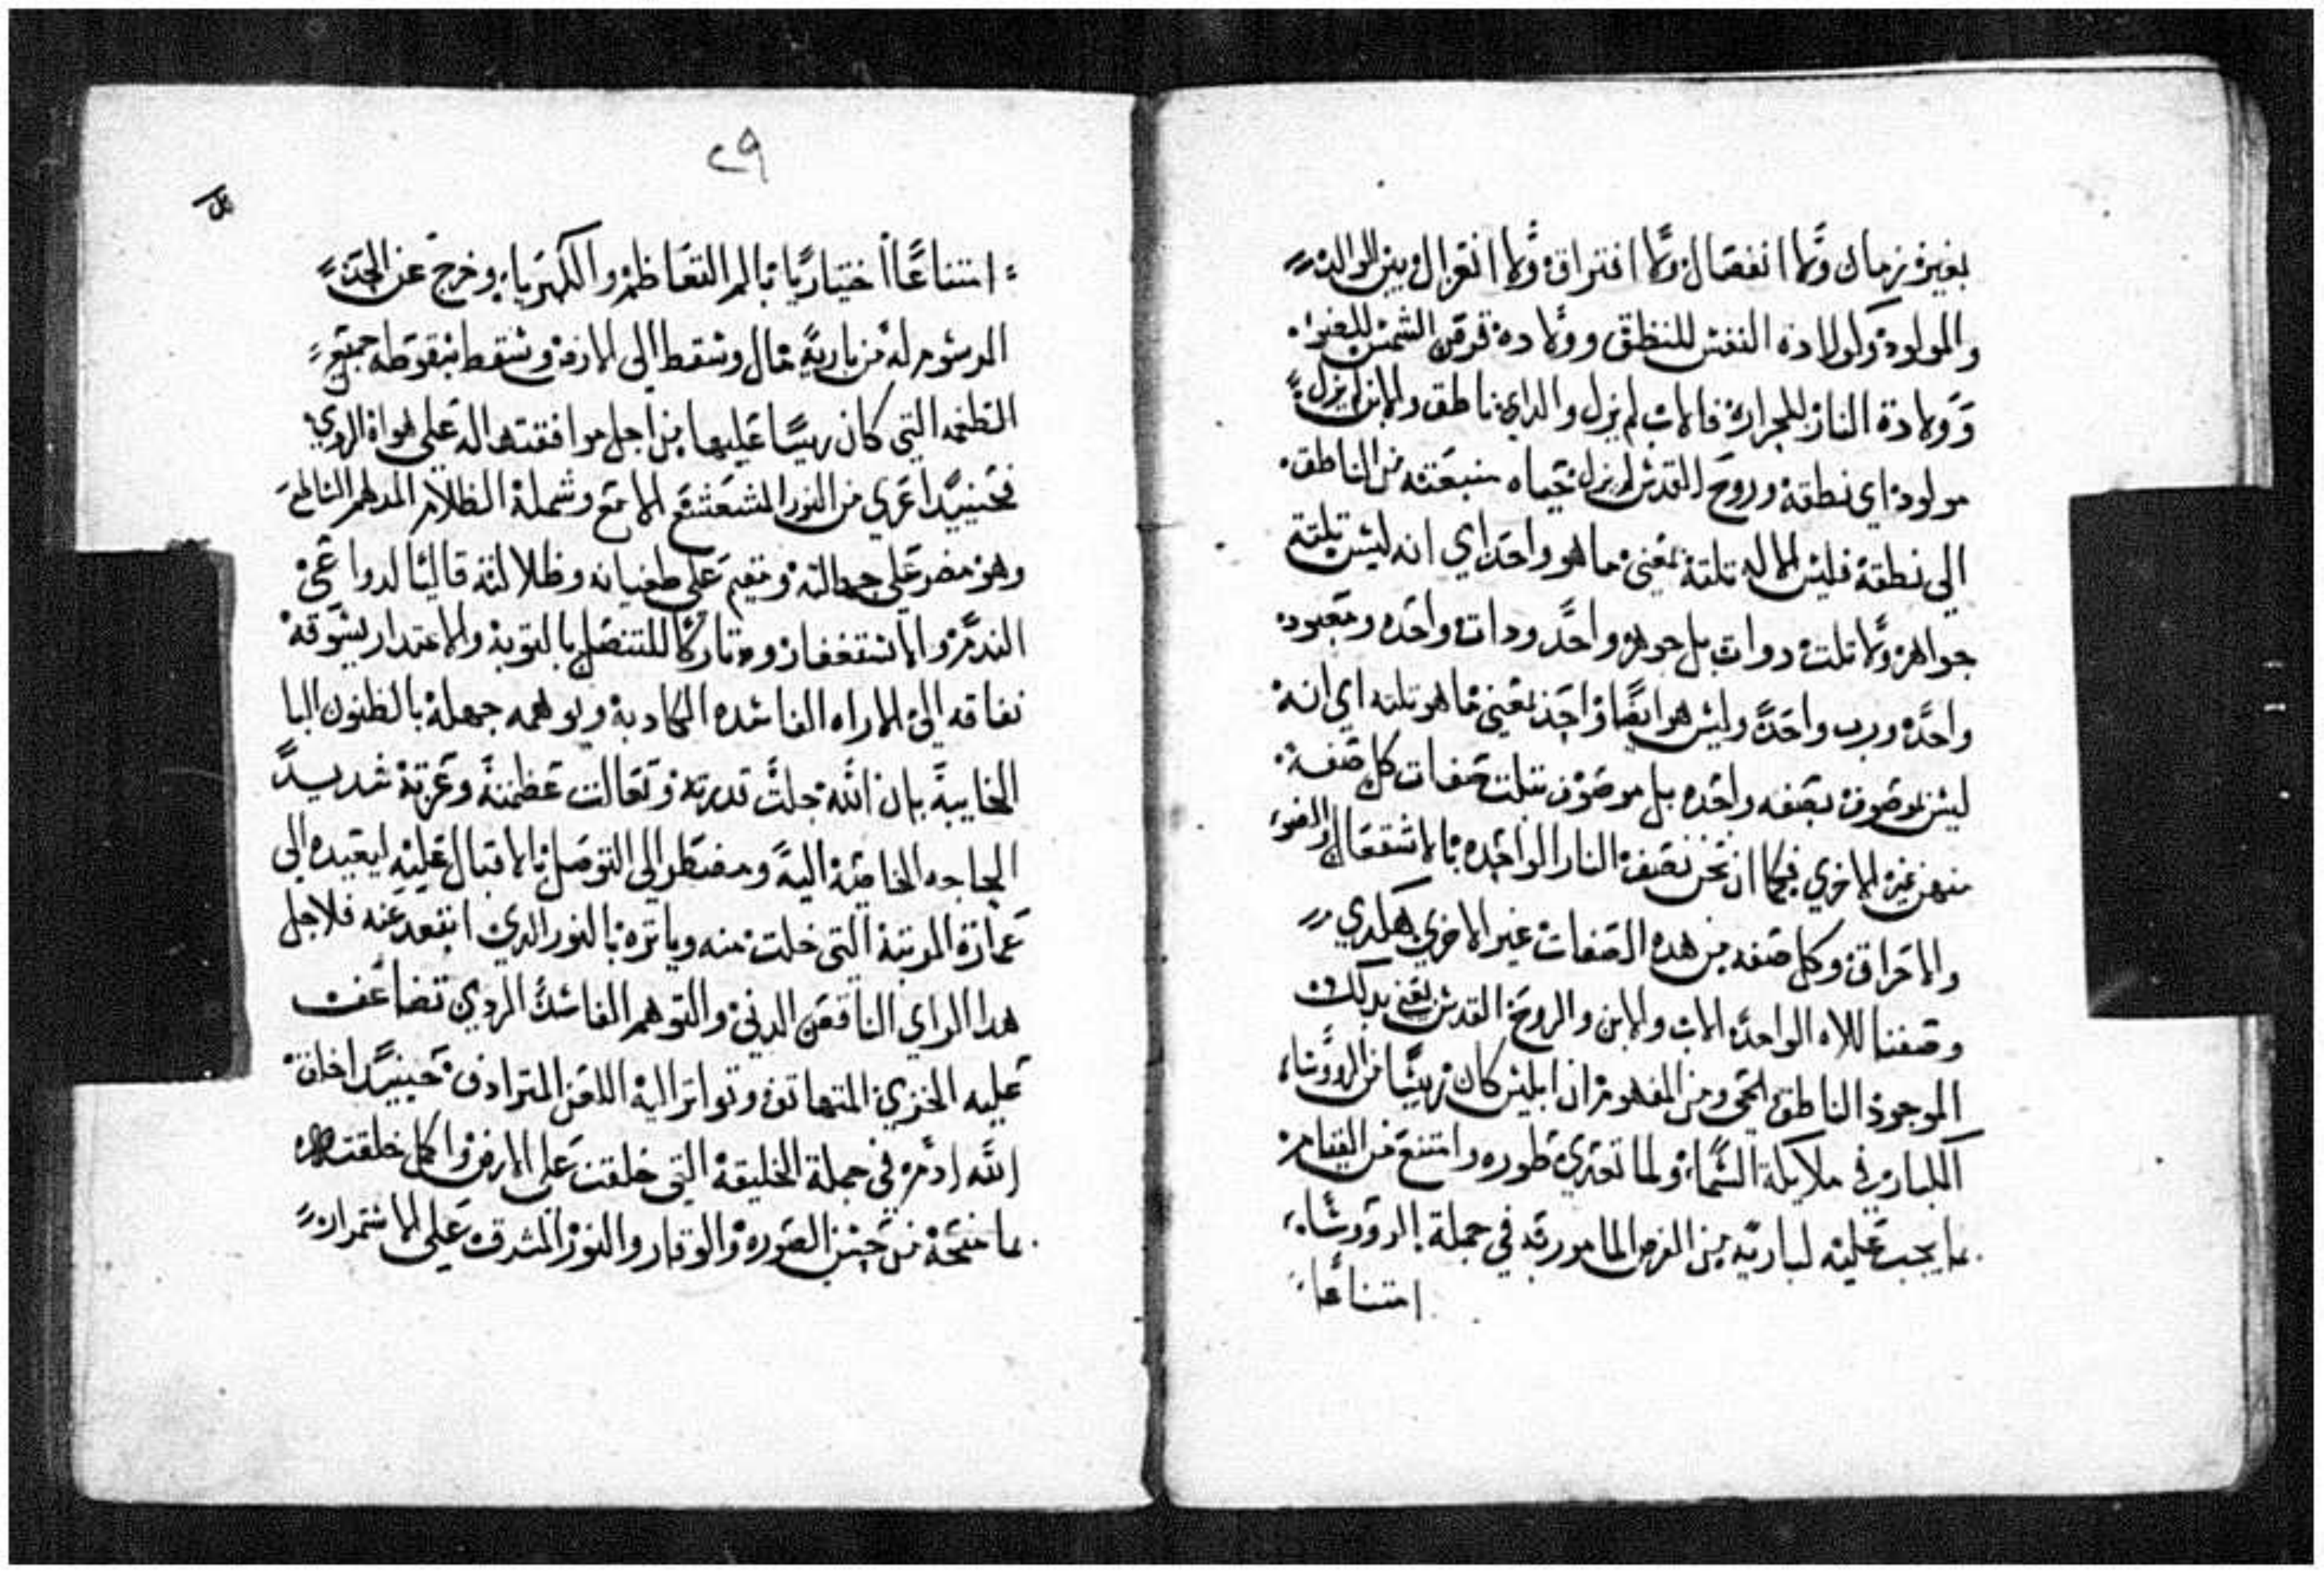 بغير زمان ولا انفصال ولا افتراق ولا انعزال بين الوالد
والمولود وكولادة النفس للنطق وولادة قرص الشمس للضوء
وولادة النار للحراره فالاب لم يزل والداي ناطق والابن لم يزل
مولود اي نطقه وروح القدس لم يزل حياه منبعته من الناطق
الي نطقه فليس الاله تلتة بمعني ما هو واحد اي انه ليس تلتة
جواهر ولا تلت دوات بل جوهر واحد ودات واحده ومعبود
واحد ورب واحد وليس هو ايضا واحد بمعني ما هو تلته اي انه
ليس بموصوف بصفه واحده بل موصوف بتلت صفات كل صفه
منهن غير الاخري فكما ان نحن نصف النار الواحده بالاشتعال والضو
والاحراق وكل صفه من هده الصفات غير الاخري هكدي
وصفنا للاه الواحد الاب والابن والروح القدس نعني بدلك
الموجود الناطق الحي ومن المفهوم ان ابليس كان ريسا من الروسا
الكبار في ملايكة السما ولما تعدي طوره وامتنع من القيام
بما يجب عليه لباريه من الفرض المامور به في جملة الروسا
امتناعا
٢٩
امتناعا اختياريا بالم التعاظم والكبريا وخرج عن الحد
المرسوم له من باريه مال وسقط الي الارض وسقط بسقوطه جميع
الطغمه التي كان ريسا عليها من اجل موافقتها له علي هواه الردي
فحينيد اعري من النور المشعشع الامع وشمله الظلام المدلهم
وهو مصر علي جهالته ومقيم علي طغيانه وظلالته قاليا لدواعي
الندم والاستغفار وتاركا للتنصل بالتوبة والاعتدار يشوقه
نفاقه الي الاراه الفاسده الكادبة ويوهمه جهله بالظنون
الخايبة بان الله جلت قدرته وتعالت عظمته وعزته شديد
الحاجه الخاصة اليه ومضطر الي التوصل بالاقبال عليه ليعيده الي
عمارة المرتبة التي خلت منه وياتره بالنور الدي ابتعد عنه فلاجل
هدا الراي الناقص الدني والتوهم الفاسد الردي تضاعف
عليه الخزي المتهاتن وتواتر اليه اللعن المترادف حينيد اخلق
الله ادم في جملة الخليقة التي خلقت علي الارض واكمل خلقته
بما منحه من حسن الصوره والوقار والنور المشرق علي الاستمرار